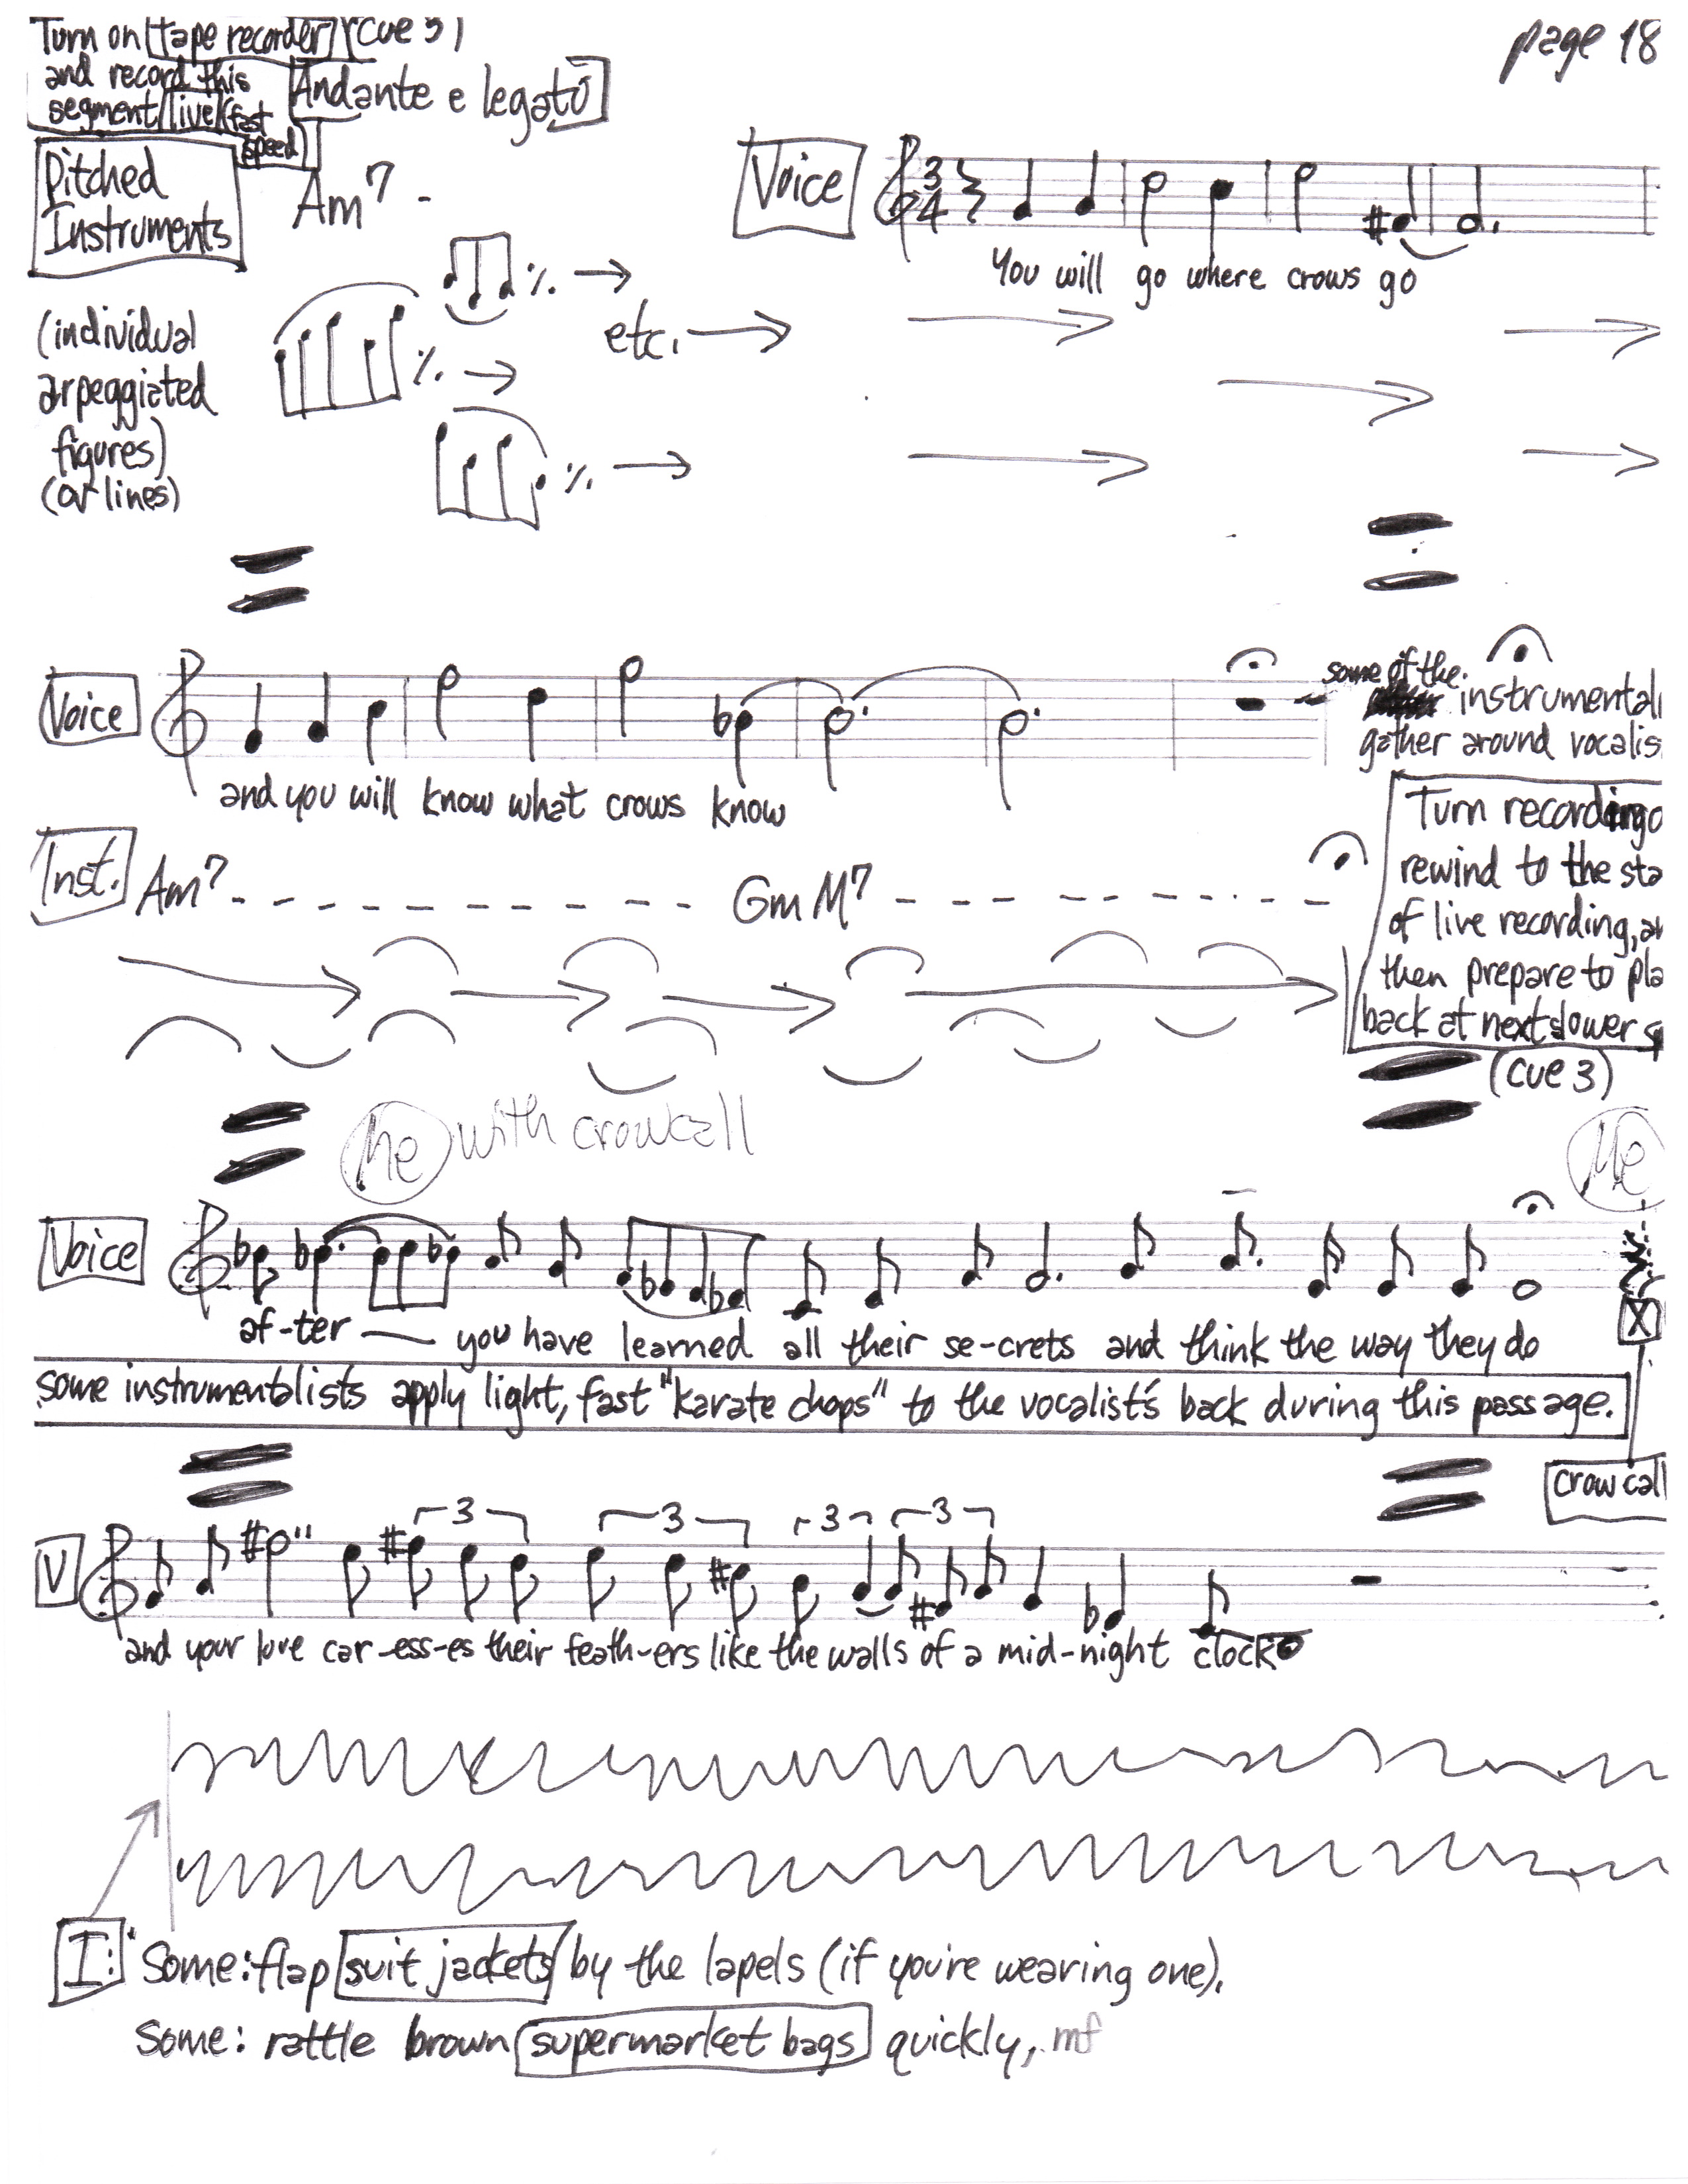 Turn on tape recorder (cue 3)
and record this
segment live (fast
speed)
page 18
Andante e legato
Pitched
Instruments
Am7 -
Voice
3
4
You will go where crows go
(individual
arpeggiated
figures)
(or lines)
etc.
Voice
and you will know what crows know
some of the
instrumentali
gather around vocalis
Inst.
Am7 - - - - - - - - - - GmM7 - - - - - - - -
Turn recording o
rewind to the sta
of live recording, an
then prepare to pla
back at next slower s
(cue 3)
Me with crowcall
Me
Voice
af-ter you have learned all their se-crets and think the way they do
X
some instrumentalists apply light, fast "karate chops" to the vocalist's back during this passage.
crow call
V
3 3 3 3
and your love car-ess-es their feath-ers like the walls of a mid-night clock
I:
Some: flap suit jackets by the lapels (if you're wearing one).
Some: rattle brown supermarket bags quickly, mf